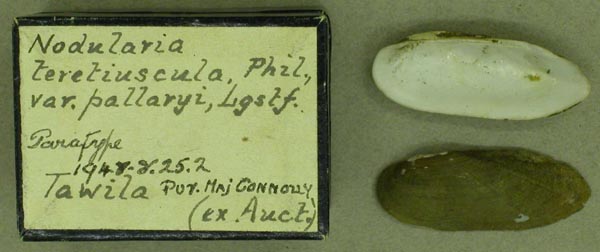 Nodularia
teretiuscula, Phil.,
var. pallaryi, Lgstf.
Paratype
1948.8.25.2
Tawila Pur. Maj Connolly
(ex. Auct.)